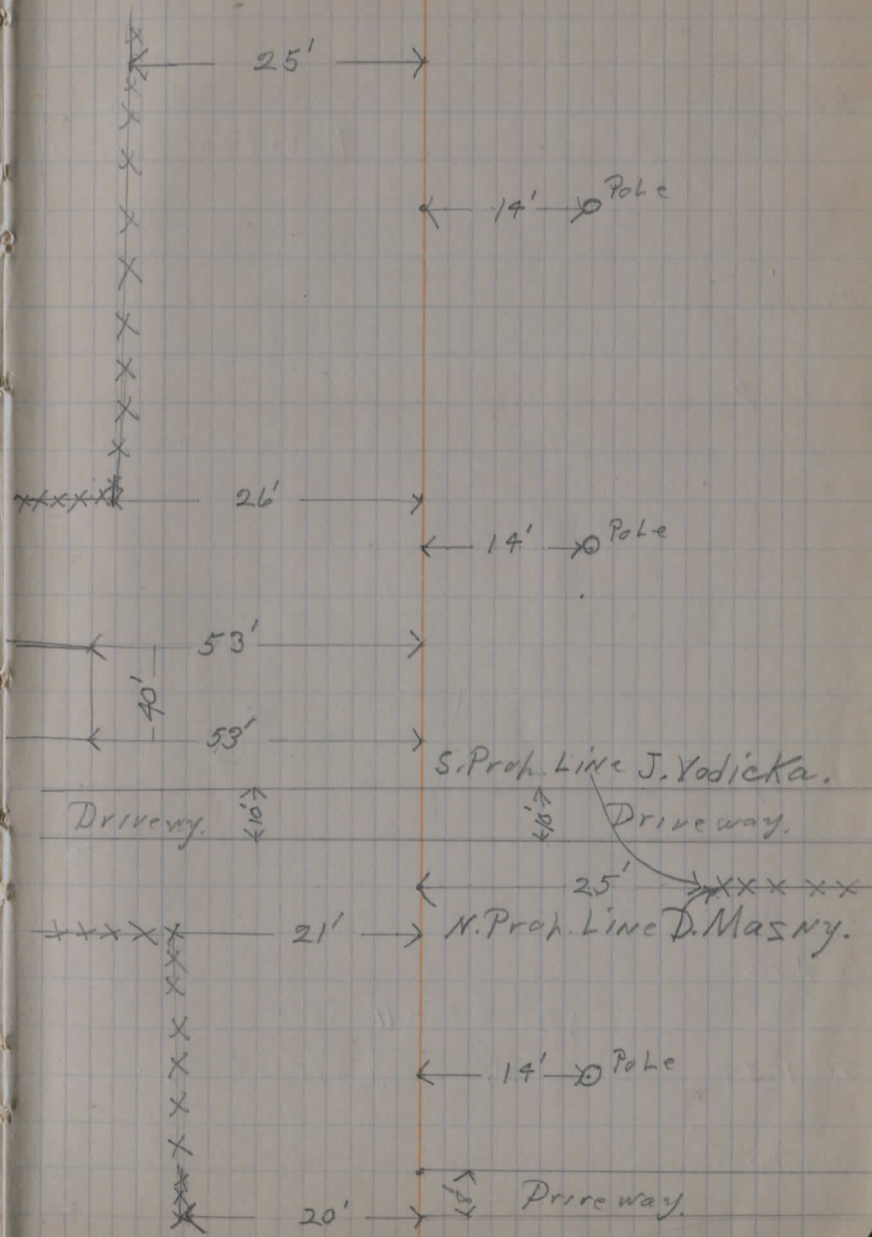 25'
14' Pole
26'
14' Pole
53'
40'
53'
S. Prop. Line J. Vodicka.
Drivewy. 10' 10' Driveway.
25'
21' N. Prop. Line D. Masny.
14' Pole
8' Driveway.
20'